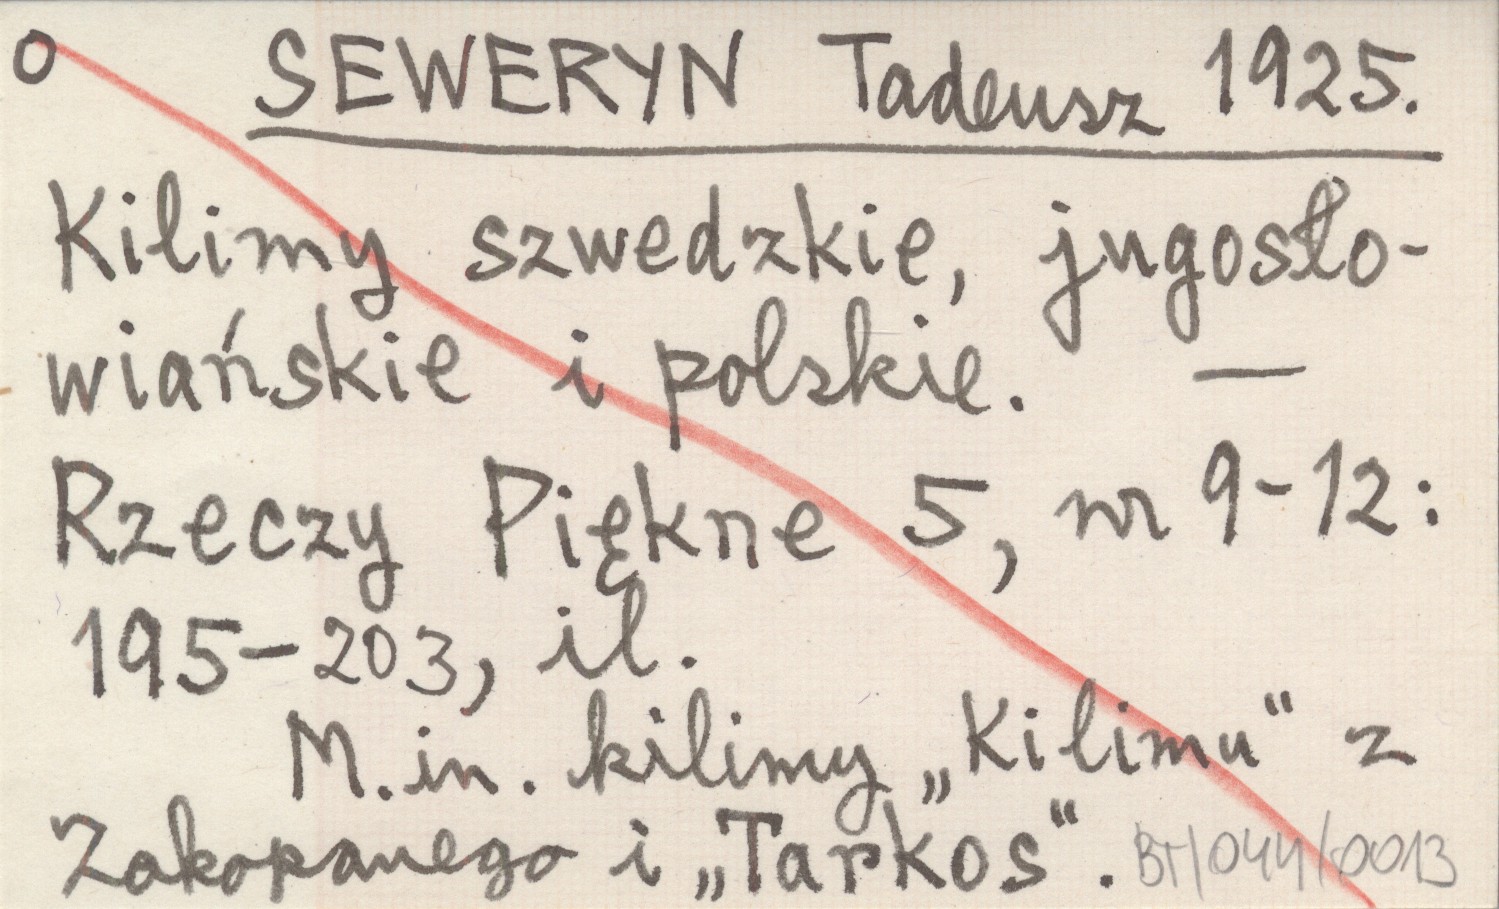 o SEWERYN Tadeusz 1925.
Kilimy szwedzkie, jugosło-
wiańskie i polskie. —
Rzeczy Piękne 5, nr 9-12:
195-203, il.
M.in. kilimy „Kilimu" z
Zakopanego i „Tarkos". BT/044/0013